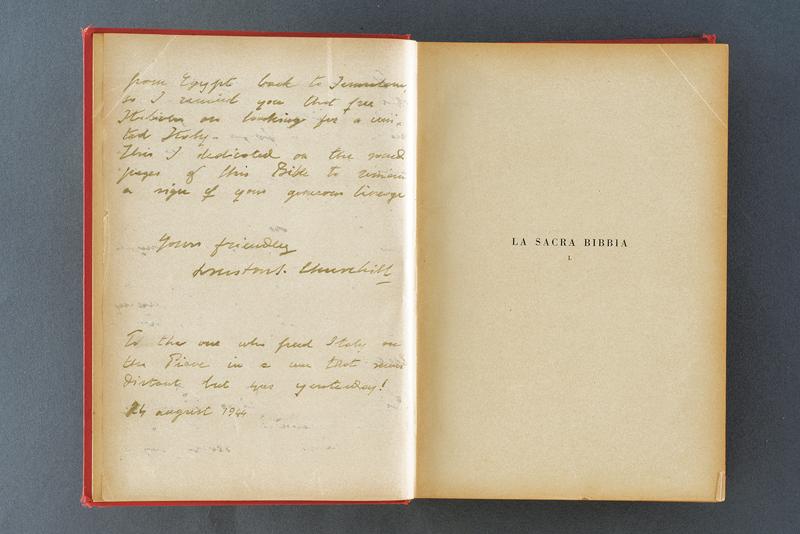 from Egypt back to Jerusalem
so I remind you that free
Italians are looking for a uni-
ted Italy.
This I dedicated on the sacred
pages of this Bible to remain
a sign of your generous lineage
Yours friendley
Winston S. Churchill
To the one who freed Italy on
the Piave in a war that seems
distant but was yesterday!
24 august 1944
LA SACRA BIBBIA
I.